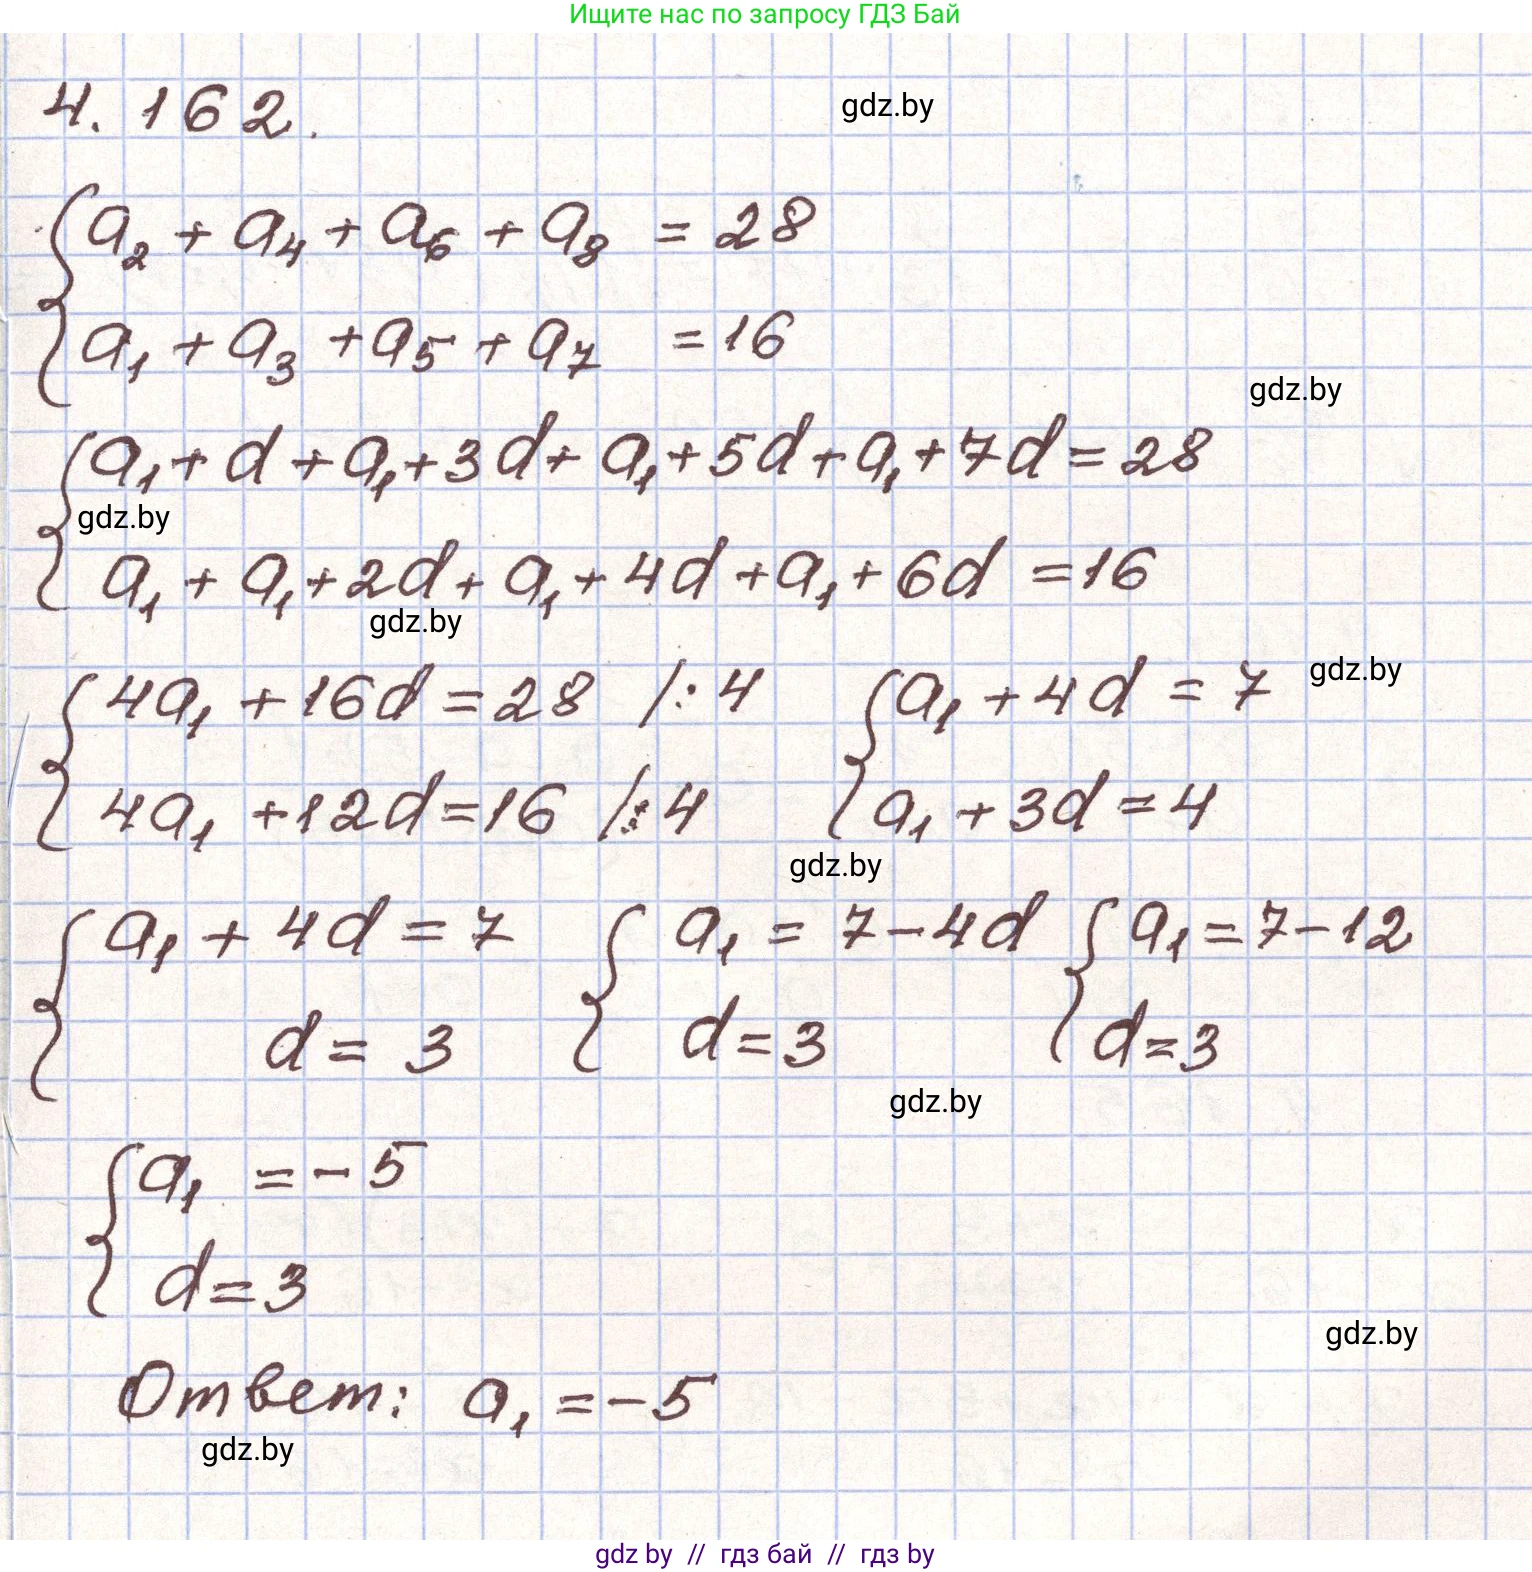 Ищите нас по запросу ГДЗ Бай
4.162.
gdz.by
a₂ + a₄ + a₆ + a₈ = 28
a₁ + a₃ + a₅ + a₇ = 16
gdz.by
a₁ + d + a₁ + 3d + a₁ + 5d + a₁ + 7d = 28
gdz.by
a₁ + a₁ + 2d + a₁ + 4d + a₁ + 6d = 16
gdz.by
4a₁ + 16d = 28 /:4 a₁ + 4d = 7
gdz.by
4a₁ + 12d = 16 /:4 a₁ + 3d = 4
gdz.by
a₁ + 4d = 7 a₁ = 7 - 4d a₁ = 7 - 12
d = 3 d = 3 d = 3
gdz.by
a₁ = -5
d = 3
gdz.by
Ответ: a₁ = -5
gdz.by
gdz by // гдз бай // гдз by